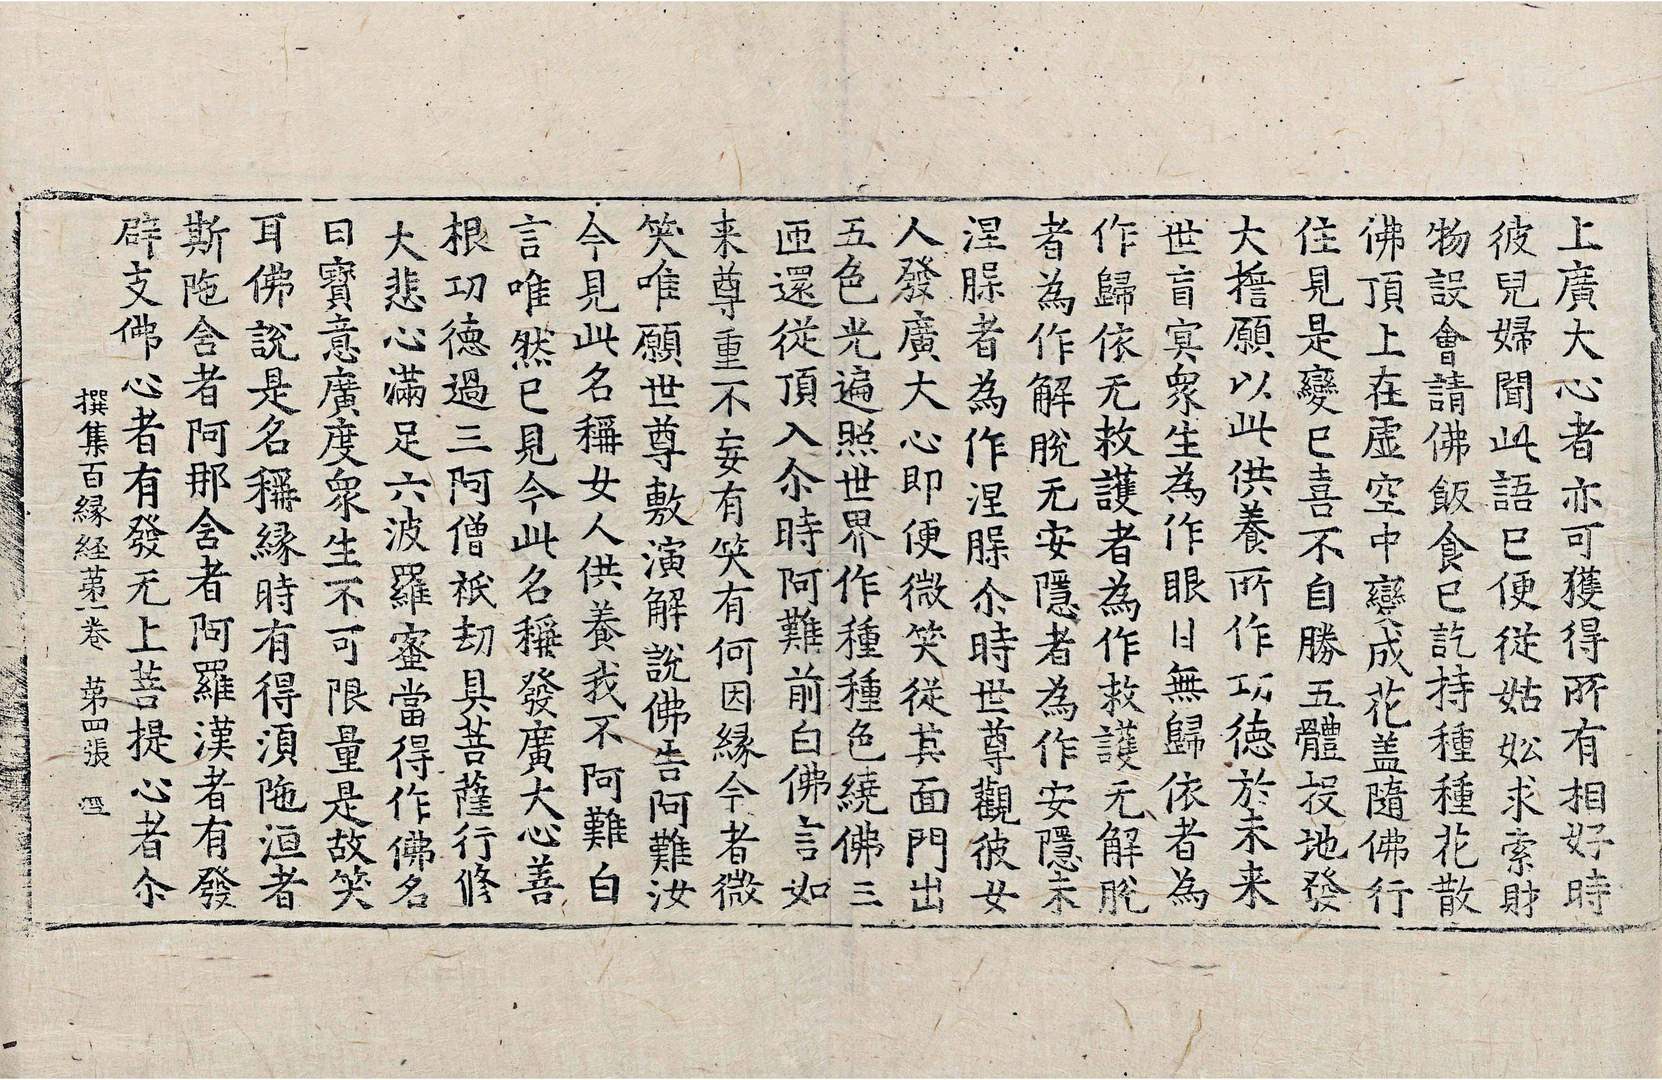 上廣大心者亦可獲得所有相好時
彼兒婦聞此語已便從姑妐求索財
物設會請佛飯食已訖持種種花散
佛頂上在虛空中變成花盖隨佛行
住見是變已喜不自勝五體投地發
大擔願以此供養所作功德於未来
世盲冥衆生為作眼目無歸依者為
作歸依无救護者為作救護无解脫
者為作解脫无安隱者為作安隱未
涅槃者為作涅槃尒時世尊觀彼女
人發廣大心即便微笑從其面門出
五色光遍照世界作種種色繞佛三
匝還從頂入尒時阿難前白佛言如
来尊重不妄有笑有何因緣今者微
笑唯願世尊敷演解說佛告阿難汝
今見此名稱女人供養我不阿難白
言唯然已見今此名稱發廣大心善
根功德過三阿僧祇劫具菩薩行修
大悲心滿足六波羅蜜當得作佛名
曰寶意廣度衆生不可限量是故笑
耳佛說是名稱緣時有得湏陁洹者
斯陁含者阿那含者阿羅漢者有發
辟支佛心者有發无上菩提心者尒
撰集百緣経苐一卷 苐四張